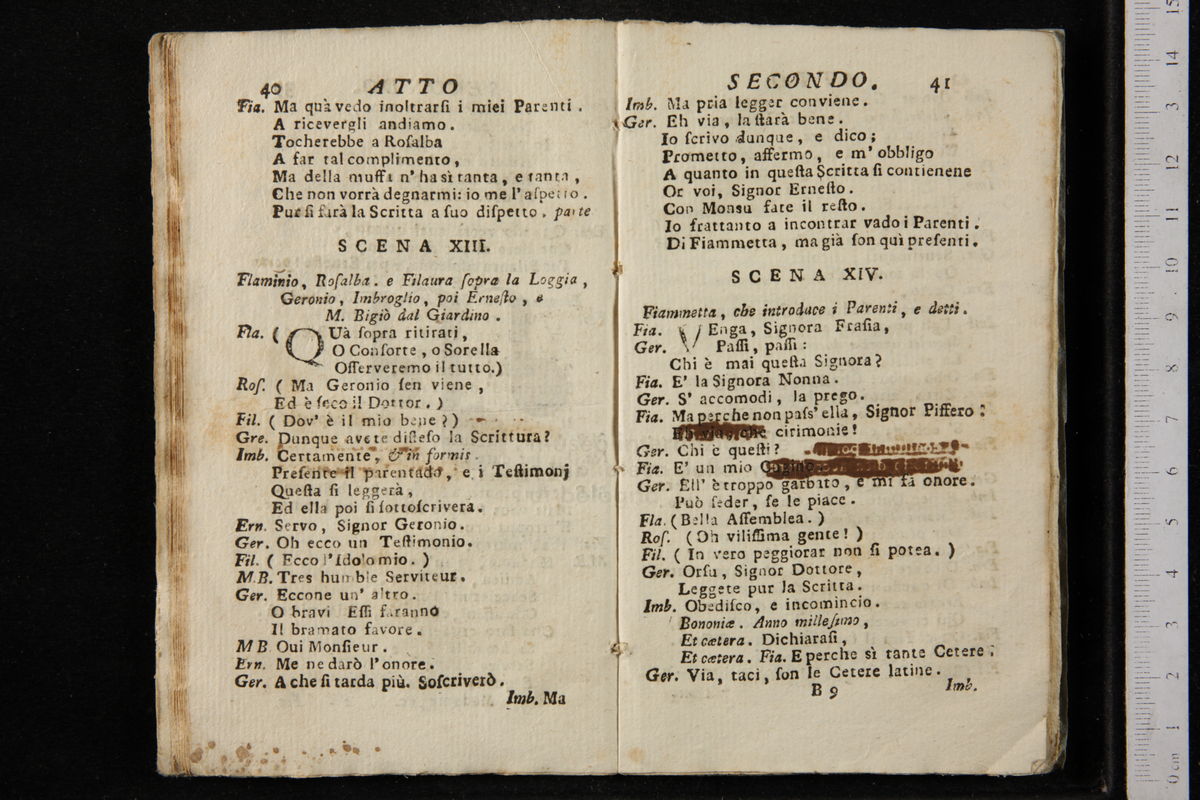 40 ATTO
Fia. Ma quà vedo inoltrarſi i miei Parenti.
A ricevergli andiamo.
Tocherebbe a Roſalba
A far tal complimento,
Ma della muffa n' ha sì tanta, e tanta,
Che non vorrà degnarmi: io me l' aſpetto.
Pur ſi farà la Scritta a ſuo diſpetto. parte
SCENA XIII.
Flaminio, Roſalba. e Filaura ſopra la Loggia,
Geronio, Imbroglio, poi Erneſto, e
M. Bigiò dal Giardino.
Fla. ( QUà ſopra ritirati,
O Conſorte, o Sorella
Oſſerveremo il tutto.)
Roſ. ( Ma Geronio ſen viene,
Ed è ſeco il Dottor. )
Fil. ( Dov' è il mio bene?)
Gre. Dunque avete diſteſo la Scrittura?
Imb. Certamente, & in formis.
Preſente il parentado, e i Teſtimonj
Queſta ſi leggerà,
Ed ella poi ſi ſottoſcriverà.
Ern. Servo, Signor Geronio.
Ger. Oh ecco un Teſtimonio.
Fil. ( Ecco l'Idolo mio. )
M.B. Tres humble Serviteur.
Ger. Eccone un' altro.
O bravi Eſſi faranno
Il bramato favore.
M B Oui Monſieur.
Ern. Me ne darò l'onore.
Ger. A che ſi tarda più. Soſcriverò.
Imb. Ma
SECONDO. 41
Imb. Ma pria legger conviene.
Ger. Eh via, la ſtarà bene.
Io ſcrivo dunque, e dico;
Prometto, affermo, e m' obbligo
A quanto in queſta Scritta ſi contienene
Or voi, Signor Erneſto.
Con Monsu fate il reſto.
Io frattanto a incontrar vado i Parenti.
Di Fiammetta, ma già ſon quì preſenti.
SCENA XIV.
Fiammetta, che introduce i Parenti, e detti.
Fia. VEnga, Signora Fraſia,
Ger. Paſſi, paſſi:
Chi è mai queſta Signora?
Fia. E' la Signora Nonna.
Ger. S' accomodi, la prego.
Fia. Ma perche non paſs' ella, Signor Piffero:
cirimonie!
Ger. Chi è queſti?
Fia. E' un mio
Ger. Ell' è troppo garbato, e mi fà onore.
Può ſeder, ſe le piace.
Fla. (Bella Aſſemblea. )
Roſ. (Oh viliſſima gente! )
Fil. ( In vero peggiorar non ſi potea. )
Ger. Orſu, Signor Dottore,
Leggete pur la Scritta.
Imb. Obediſco, e incomincio.
Bononiæ. Anno milleſimo,
Et cætera. Dichiaraſi,
Et cætera. Fia. E perche sì tante Cetere:
Ger. Via, taci, ſon le Cetere latine.
B 9 Imb.